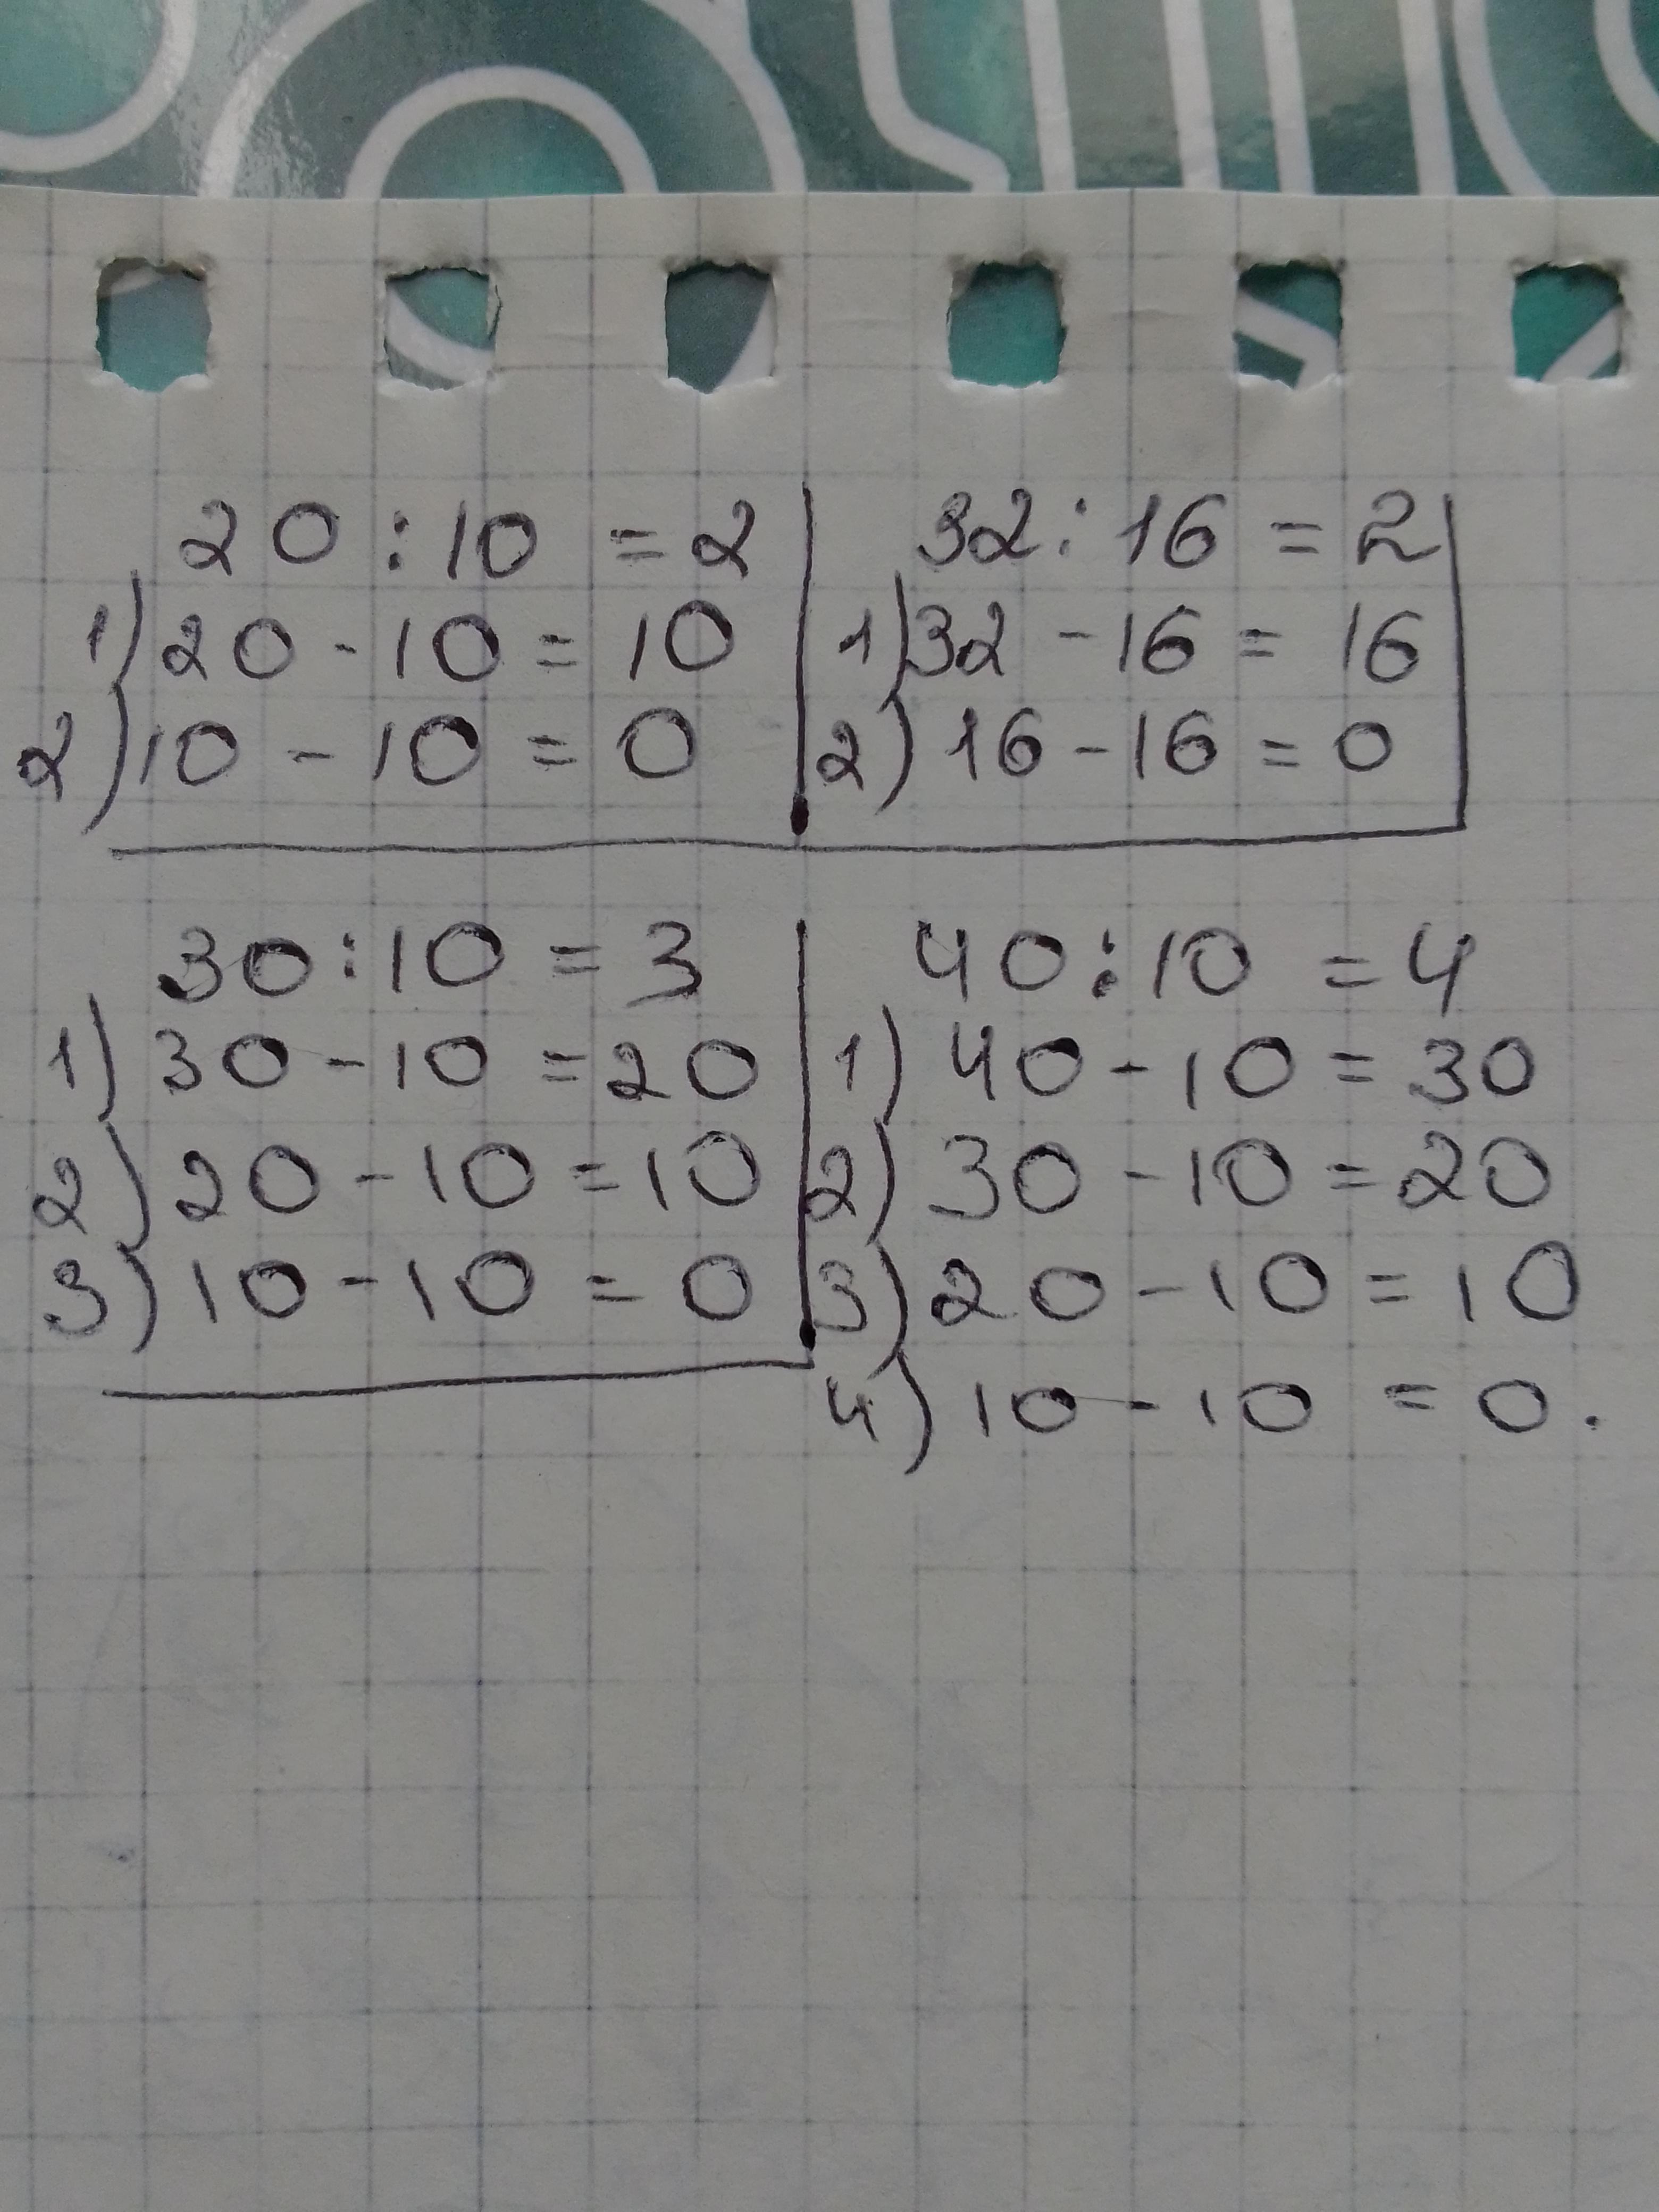 20 : 10 = 2
1) 20 - 10 = 10
2) 10 - 10 = 0
32 : 16 = 2
1) 32 - 16 = 16
2) 16 - 16 = 0
30 : 10 = 3
1) 30 - 10 = 20
2) 20 - 10 = 10
3) 10 - 10 = 0
40 : 10 = 4
1) 40 - 10 = 30
2) 30 - 10 = 20
3) 20 - 10 = 10
4) 10 - 10 = 0.